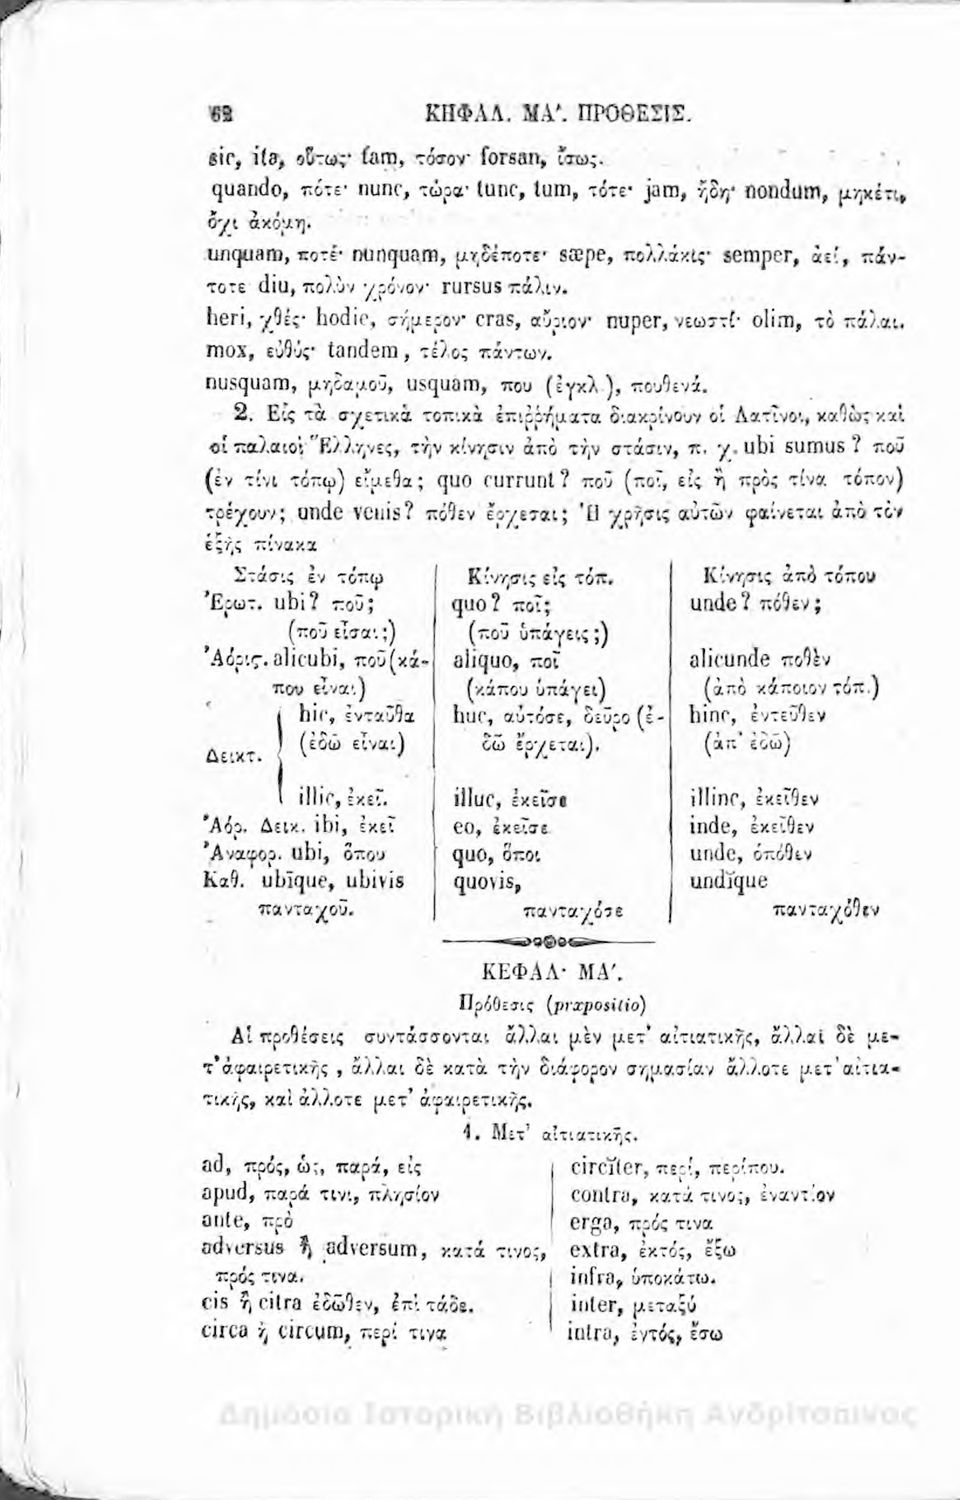 62 ΚΗΦΑΛ. ΜΑ'. ΠΡΟΘΕΣΙΣ.
sic, ita, οὕτως· tam, τόσον· forsan, ἴσως.
quando, πότε· nunc, τώρα· tunc, tum, τότε· jam, ἤδη· nondum, μηκέτι,
ὄχι ἀκόμη.
unquam, ποτέ· nunquam, μηδέποτε· sæpe, πολλάκις· semper, ἀεί, πάν-
τοτε diu, πολὺν χρόνον· rursus πάλιν.
heri, χθές· hodie, σήμερον· cras, αὔριον· nuper, νεωστί· olim, τὸ πάλαι.
mox, εὐθύς· tandem, τέλος πάντων.
nusquam, μηδαμοῦ, usquam, που (ἐγκλ.), πουθενά.
2. Εἰς τὰ σχετικὰ τοπικὰ ἐπιῤῥήματα διακρίνουν οἱ Λατῖνοι, καθὼς καὶ
οἱ παλαιοὶ Ἕλληνες, τὴν κίνησιν ἀπὸ τὴν στάσιν, π. χ. ubi sumus? ποῦ
(ἐν τίνι τόπῳ) εἴμεθα; quo currunt? ποῦ (ποῖ, εἰς ἢ πρὸς τίνα τόπον)
τρέχουν; unde venis? πόθεν ἔρχεσαι; Ἡ χρῆσις αὐτῶν φαίνεται ἀπὸ τὸν
ἑξῆς πίνακα
Στάσις ἐν τόπῳ Κίνησις εἰς τόπ. Κίνησις ἀπὸ τόπου
Ἐρωτ. ubi? ποῦ; quo? ποῖ; unde? πόθεν;
(ποῦ εἶσαι;) (ποῦ ὑπάγεις;)
Ἀόρις. alicubi, ποῦ(κά- aliquo, ποῖ alicunde ποθὲν
που εἶναι) (κάπου ὑπάγει) (ἀπὸ κάποιον τόπ.)
hic, ἐνταῦθα huc, αὐτόσε, δεῦρο (ἐ- hinc, ἐντεῦθεν
Δεικτ. (ἐδῶ εἶναι) δῶ ἔρχεται). (ἀπ' ἐδῶ)
illic, ἐκεῖ. illuc, ἐκεῖσε illinc, ἐκεῖθεν
Ἀόρ. Δεικ. ibi, ἐκεῖ eo, ἐκεῖσε inde, ἐκεῖθεν
Ἀναφορ. ubi, ὅπου quo, ὅποι unde, ὁπόθεν
Καθ. ubīque, ubivis quovis, undĭque
πανταχοῦ. πανταχόσε πανταχόθεν
ΚΕΦΑΛ· ΜΑ'.
Πρόθεσις (præpositio)
Αἱ προθέσεις συντάσσονται ἄλλαι μὲν μετ' αἰτιατικῆς, ἄλλαι δὲ με-
τ' ἀφαιρετικῆς , ἄλλαι δὲ κατὰ τὴν διάφορον σημασίαν ἄλλοτε μετ' αἰτια-
τικῆς, καὶ ἄλλοτε μετ' ἀφαιρετικῆς.
1. Μετ' αἰτιατικῆς.
ad, πρός, ὡς, παρά, εἰς
apud, παρά τινι, πλησίον
ante, πρὸ
adversus ἢ adversum, κατά τινος,
πρός τινα.
cis ἢ citra ἐδῶθεν, ἐπὶ τάδε.
circa ἢ circum, περί τινα
circĭter, περί, περίπου.
contra, κατά τινος, ἐναντίον
erga, πρός τινα
extra, ἐκτός, ἔξω
infra, ὑποκάτω.
inter, μεταξύ
intra, ἐντός, ἔσω
Δημόσια Ιστορική Βιβλιοθήκη Ανδρίτσαινας